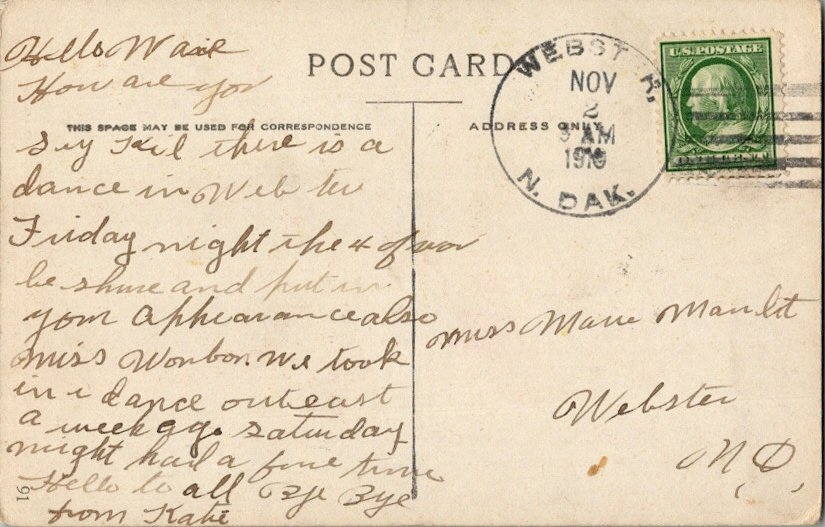 Hello
How are you
POST CARD
THIS SPACE MAY BE USED FOR CORRESPONDENCE
ADDRESS ONLY
WEBSTER,
NOV
2
AM
1910
N. DAK.
U.S. POSTAGE
say Kid there is a
dance in Webster
Friday night the 4 of nov
be shure and put in
your apphearance also
miss We took
in a dance out east
a week ago Saturday
night had a fine time
Hello to all Bye Bye
from Katie
Miss Marie
Webster
N.D.
91